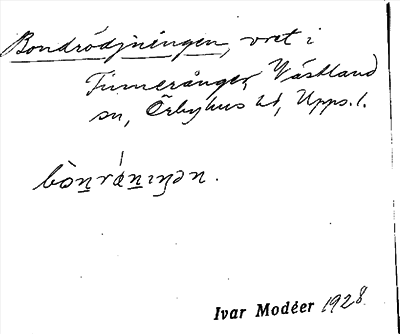 Bondrödjningen, vret i
Finneränger, Västland
sn, Örbyhus hd, Upps. l.
bòn̲rán̲ıŋən.
Ivar Modéer 1928.